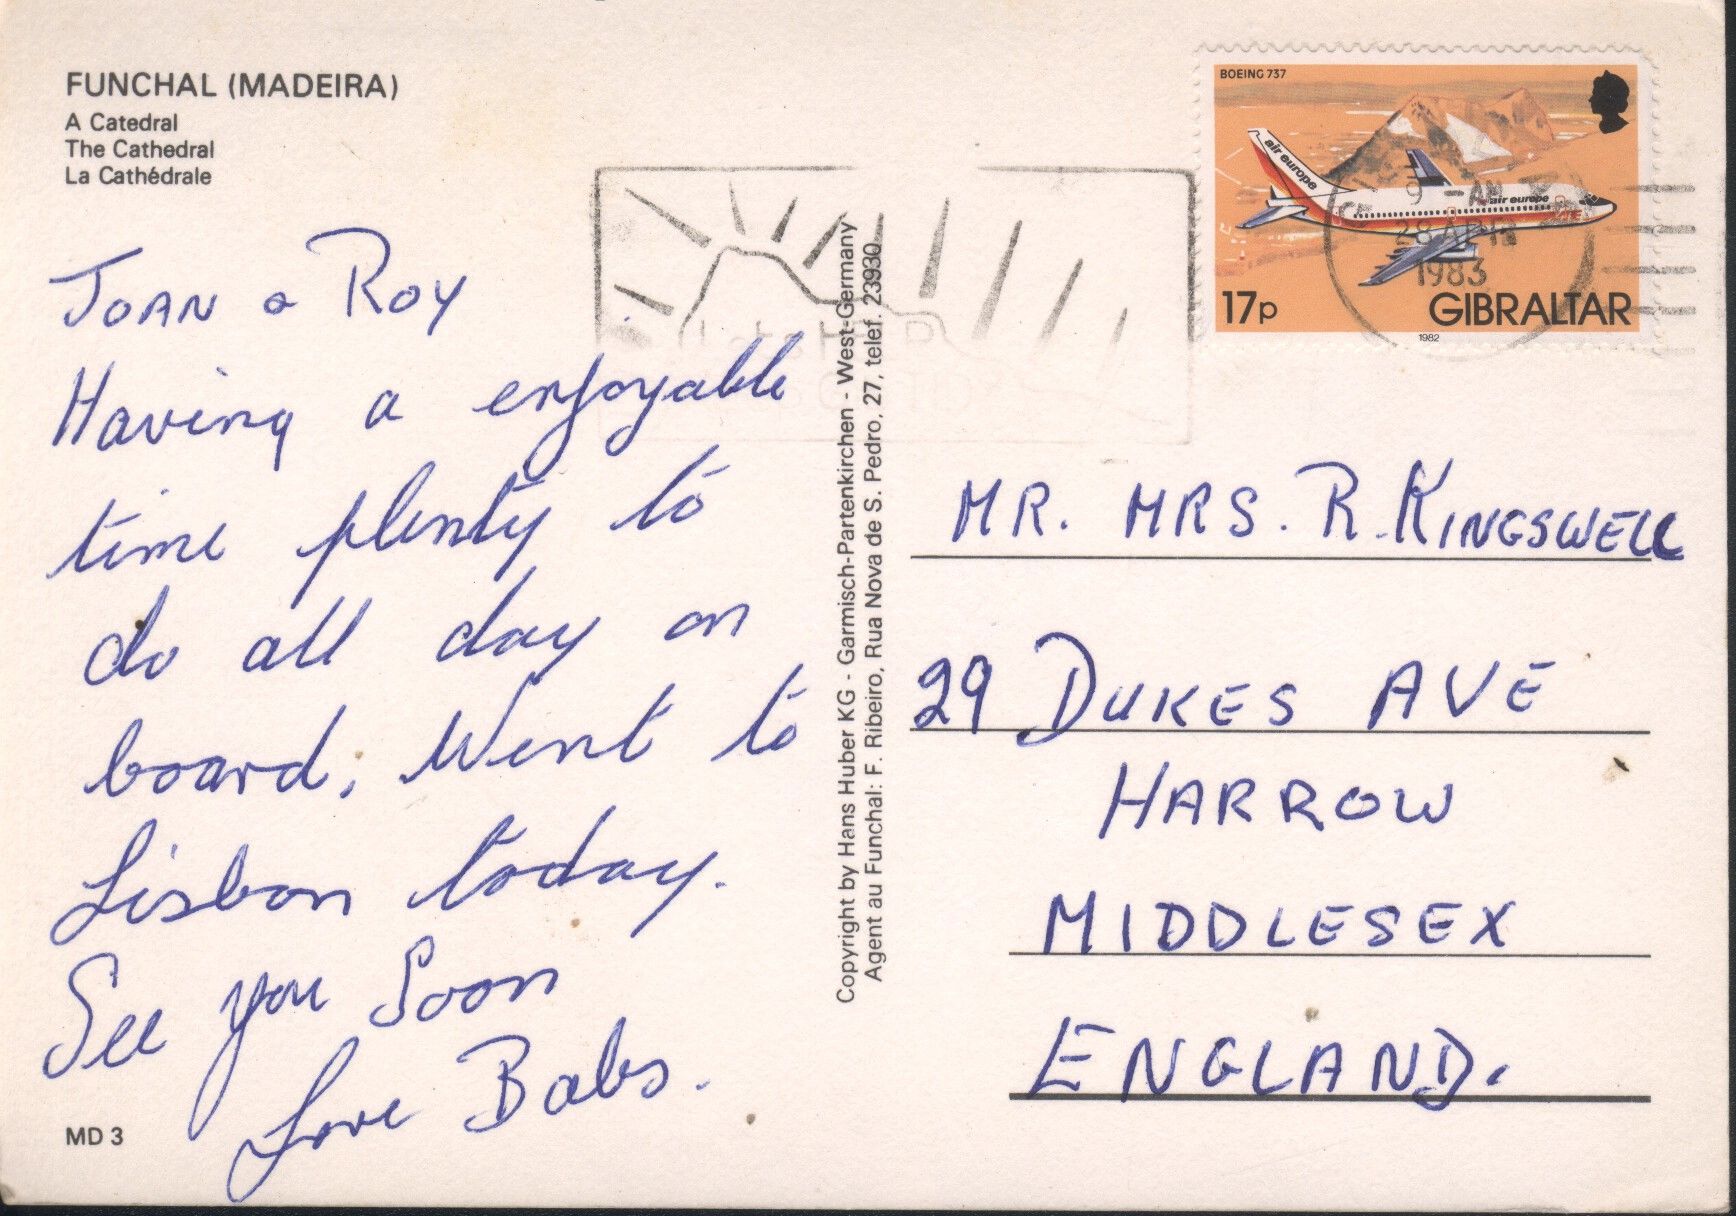 FUNCHAL (MADEIRA)
A Catedral
The Cathedral
La Cathédrale
JOAN & ROY
Having a enjoyable
time plenty to
do all day on
board, Went to
Lisbon today.
See you Soon
Love Babs.
MD 3
Copyright by Hans Huber KG - Garmisch-Partenkirchen - West-Germany
Agent au Funchal: F. Ribeiro, Rua Nova de S. Pedro, 27, telef. 23930
BOEING 737
air europe
air europe
9 - AM
28 APR
1983
17p GIBRALTAR
1982
MR. MRS. R. KINGSWELL
29 DUKES AVE
HARROW
MIDDLESEX
ENGLAND.